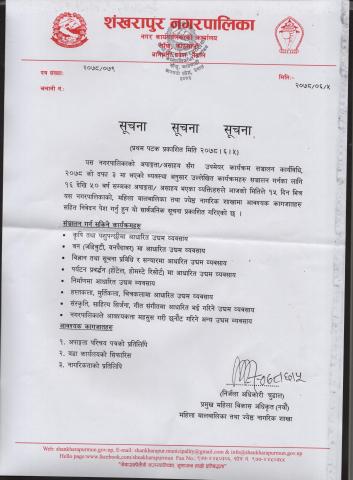 शंखरापुर नगरपालिका
नगर कार्यपालिकाको कार्यालय
पत्र संख्याः २०७८/०७९
मितिः- २०७८/०६/५
चलानी नं.:
सूचना सूचना सूचना
(प्रथम पटक प्रकाशित मिति २०७८।६।५)
यस नगरपालिकाको अपाङ्गता/असहाय सँग उपमेयर कार्यक्रम सञ्चालन कार्यविधि,
२०७८ को दफा ३ मा भएको व्यवस्था अनुसार उल्लेखित कार्यक्रमहरु सञ्चालन गर्नका लागि
१६ देखि ५० वर्ष सम्मका अपाङ्गता/असहाय भएका व्यक्तिहरुले आजको मितिले १५ दिन भित्र
यस नगरपालिकाको, महिला बालबालिका तथा ज्येष्ठ नागरिक शाखामा आवश्यक कागजातहरु
सहित निवेदन पेश गर्नु हुन यो सार्वजनिक सूचना प्रकाशित गरिएको छ ।
संचालन गर्न सकिने कार्यक्रमहरु
• कृषि तथा पशुपन्छीमा आधारित उद्यम व्यवसाय
• वन (जडिबुटी, वनपैदावर) मा आधारित उद्यम व्यवसाय
• विज्ञान तथा सूचना प्रविधि र सन्चारमा आधारित उद्यम व्यवसाय
• पर्यटन प्रबर्द्धन (होटेल, होमस्टे रिसोर्ट) मा आधारित उद्यम व्यवसाय
• निर्माणमा आधारित उद्यम व्यवसाय
• हस्तकला, मुर्तिकला, चित्रकलामा आधारित उद्यम व्यवसाय
• संस्कृति, साहित्य सिर्जना, गीत संगीतमा आधारित भई गरिने उद्यम व्यवसाय
• नगरपालिकाले आवश्यकता महसुस गरी छनौट गरिने अन्य उद्यम व्यवसाय
आवश्यक कागजातहरु
१. अपाङ्गता परिचय पत्रको प्रतिलिपि
२. वडा कार्यालयको सिफारिस
३. नागरिकताको प्रतिलिपि
२०७८/६/५
(निर्जला अधिकारी चुडाल)
प्रमुख महिला विकास अधिकृत (नवौं)
महिला बालबालिका तथा ज्येष्ठ नागरिक शाखा
Web: shankharapurmun.gov.np, E-mail: shankharapur.municipality@gmail.com & info@shankharapurmun.gov.np